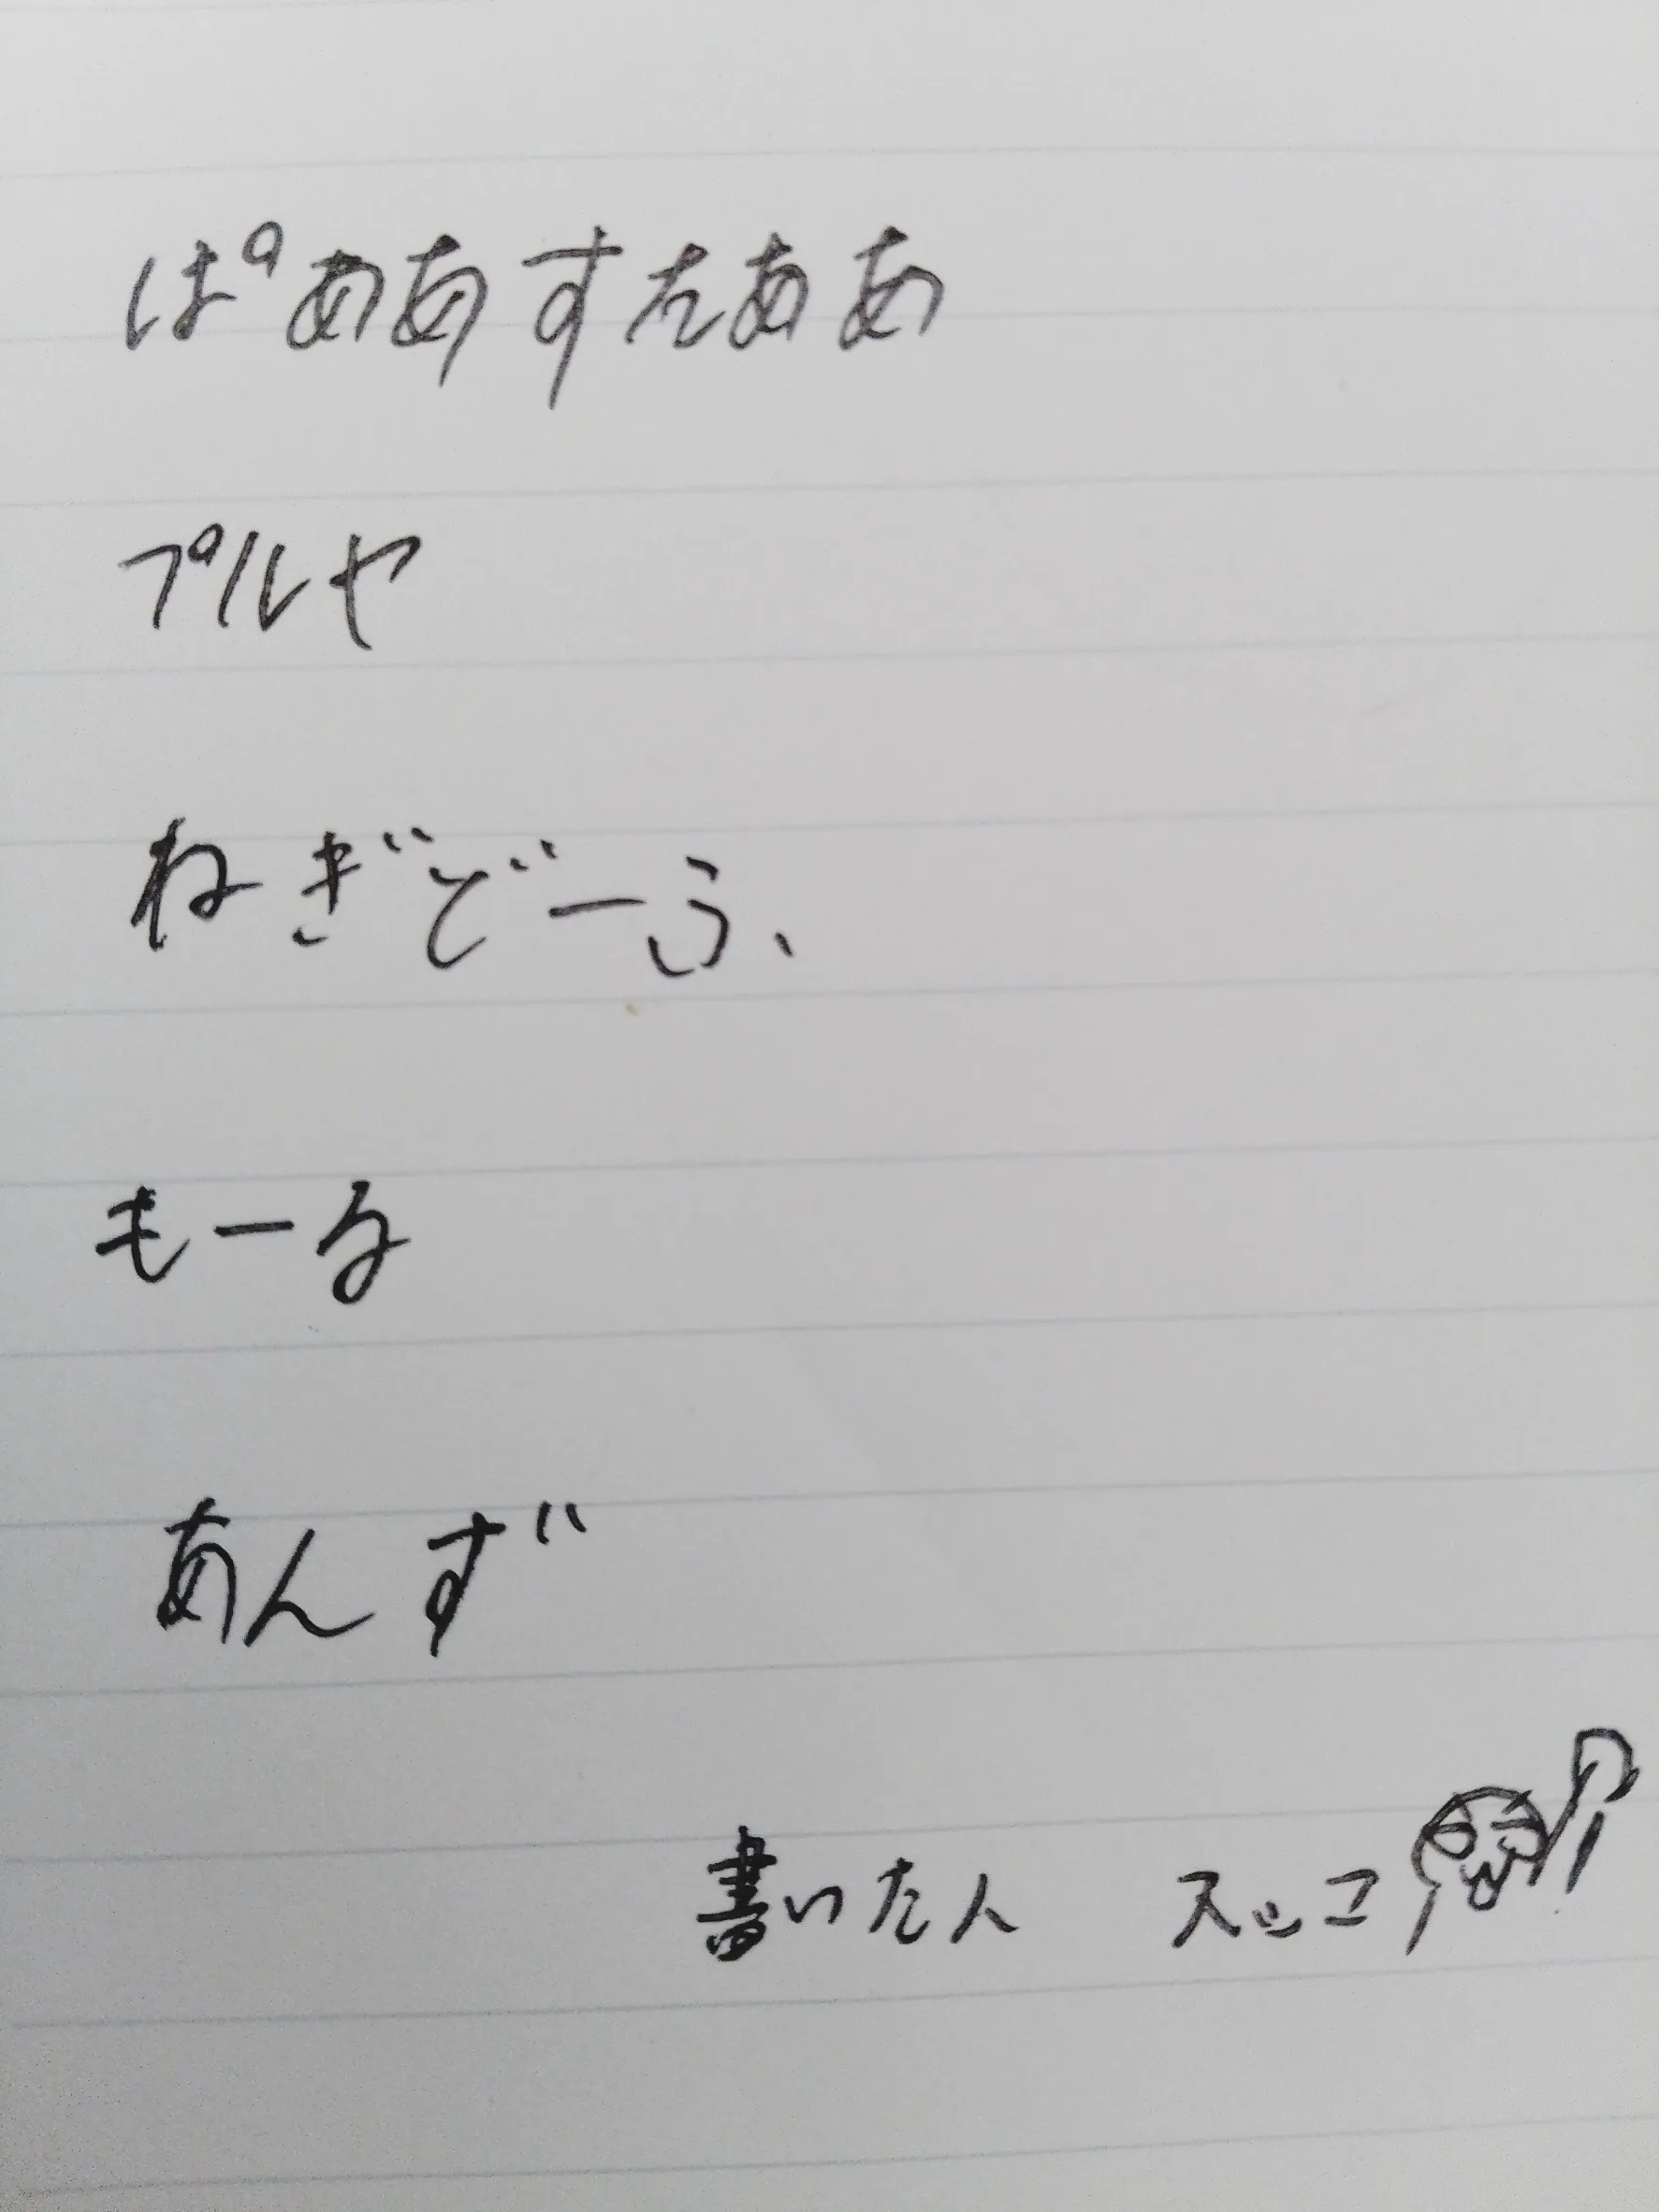 ぱああすたああ
プルヤ
ねぎどーふ、
もーる
あんず
書いた人 スッコ